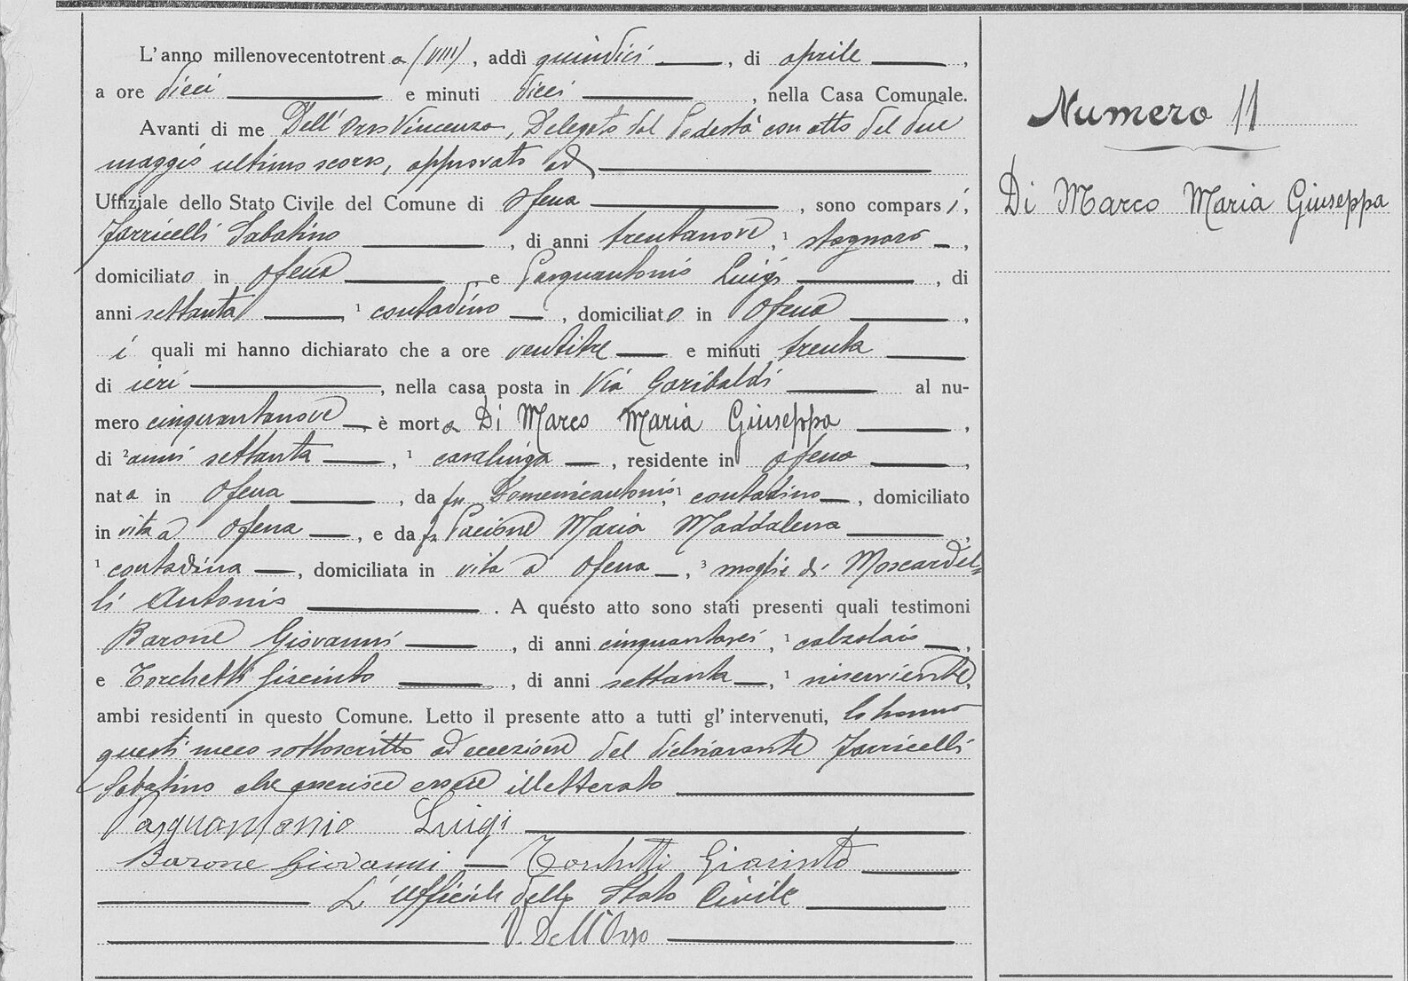 L'anno millenovecentotrenta (VIII), addì quindici, di aprile,
a ore dieci e minuti dieci, nella Casa Comunale.
Avanti di me Dell'Orso Vincenzo, Delegato dal Podestà con atto del due
maggio ultimo scorso, approvato ed
Uffiziale dello Stato Civile del Comune di Ofena, sono comparsi,
Iarricelli Sabatino, di anni trentanove, ¹ stagnaro,
domiciliato in Ofena e Pasquantonio Luigi, di
anni settanta, ¹ contadino, domiciliato in Ofena,
i quali mi hanno dichiarato che a ore ventitre e minuti trenta
di ieri, nella casa posta in Via Garibaldi al nu-
mero cinquantanove, è morta Di Marco Maria Giuseppa,
di ² anni settanta, ¹ casalinga, residente in Ofena,
nata in Ofena, da fu Domenicantonio, ¹ contadino, domiciliato
in vita a Ofena, e da fu Pacione Maria Maddalena,
¹ contadina, domiciliata in vita a Ofena, ³ moglie di Moscardel=
li Antonio. A questo atto sono stati presenti quali testimoni
Barone Giovanni, di anni cinquantasei, ¹ calzolaio,
e Torchetti Giacinto, di anni settanta, ¹ inserviente,
ambi residenti in questo Comune. Letto il presente atto a tutti gl'intervenuti, lo hanno
questi meco sottoscritto ad eccezione del dichiarante Iarricelli
Sabatino che asserisce essere illetterato
Pasquantonio Luigi
Barone Giovanni — Torchetti Giacinto
L'Ufficiale dello Stato Civile
V. Dell'Orso
Numero 11
Di Marco Maria Giuseppa